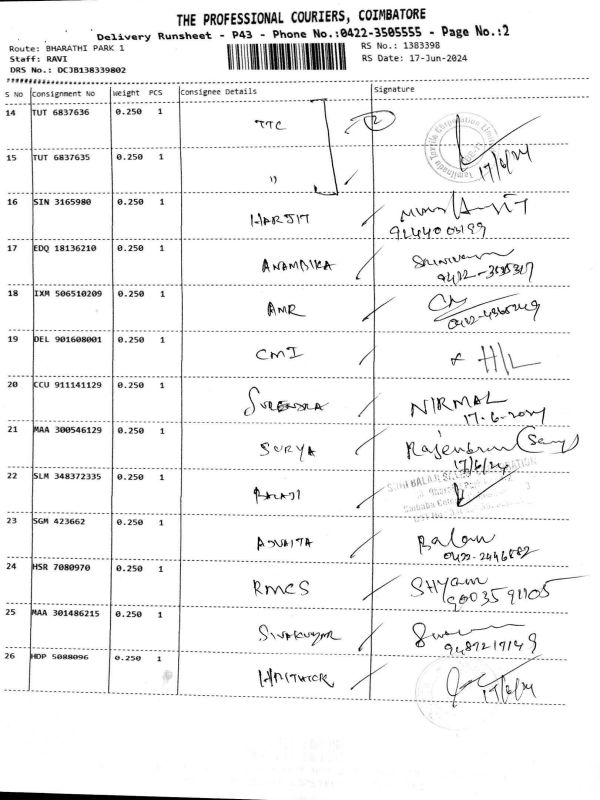 THE PROFESSIONAL COURIERS, COIMBATORE
Delivery Runsheet - P43 - Phone No.:0422-3505555 - Page No.:2
Route: BHARATHI PARK 1
RS No.: 1383398
Staff: RAVI
RS Date: 17-Jun-2024
DRS No.: DCJB138339802
S No Consignment No Weight PCS Consignee Details Signature
14 TUT 6837636 0.250 1 TTC 2
15 TUT 6837635 0.250 1 " 17/6/24
16 SIN 3165980 0.250 1 HARJIT
17 EDQ 18136210 0.250 1 ANAMDIKA
18 IXM 506510209 0.250 1 AMR
19 DEL 901608001 0.250 1 CMI H/L
20 CCU 911141129 0.250 1 SURENDRA NIRMAL
17-6-2024
21 MAA 300546129 0.250 1 SURYA
17/6/24
22 SLM 348372335 0.250 1 BALAJI
23 SGM 423662 0.250 1 ADVAITA Balan
24 HSR 7080970 0.250 1 RMCS SHYAM
90035 91105
25 MAA 301486215 0.250 1 SIVAKUMAR
26 HDP 5088096 0.250 1 17/6/24